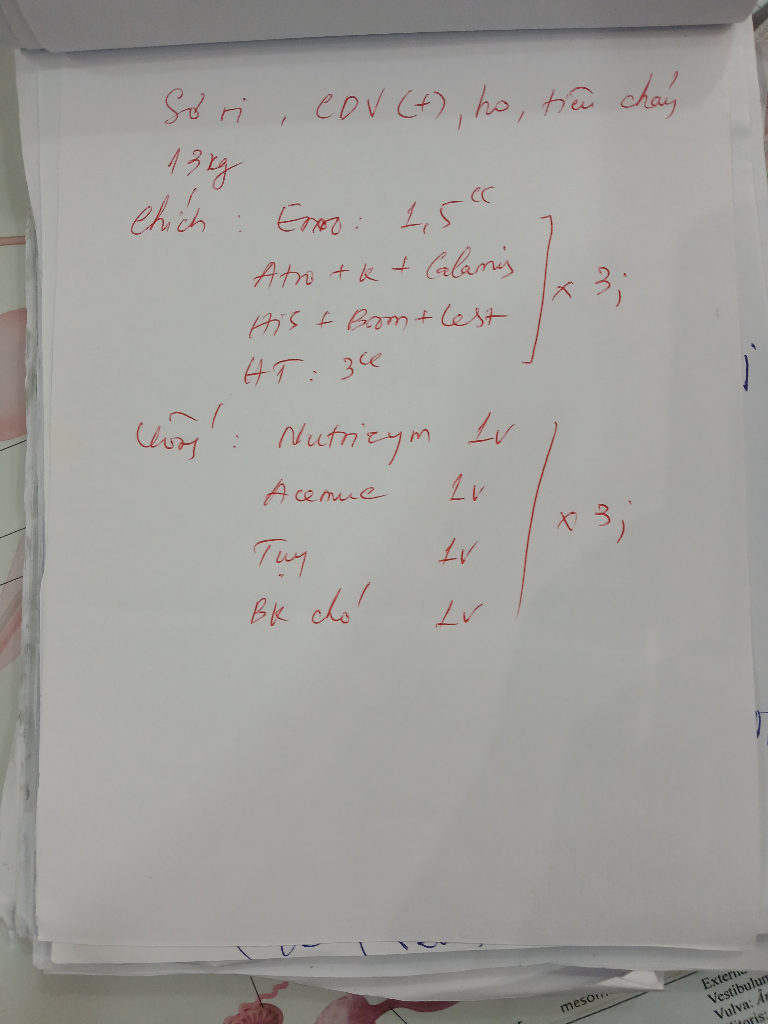 Sơ ri , CDV (+), ho, tiêu chảy
13kg
Chích : Enro: 1,5cc
Atro + K + Calamis
His + Brom + Cest
HT : 3cc
x 3j
Uống : Nutrizym 1v
Acemuc 1v
Tụy 1v
BK chó 1v
x 3j
mesom
Extern
Vestibulum
Vulva: Â
litoris: